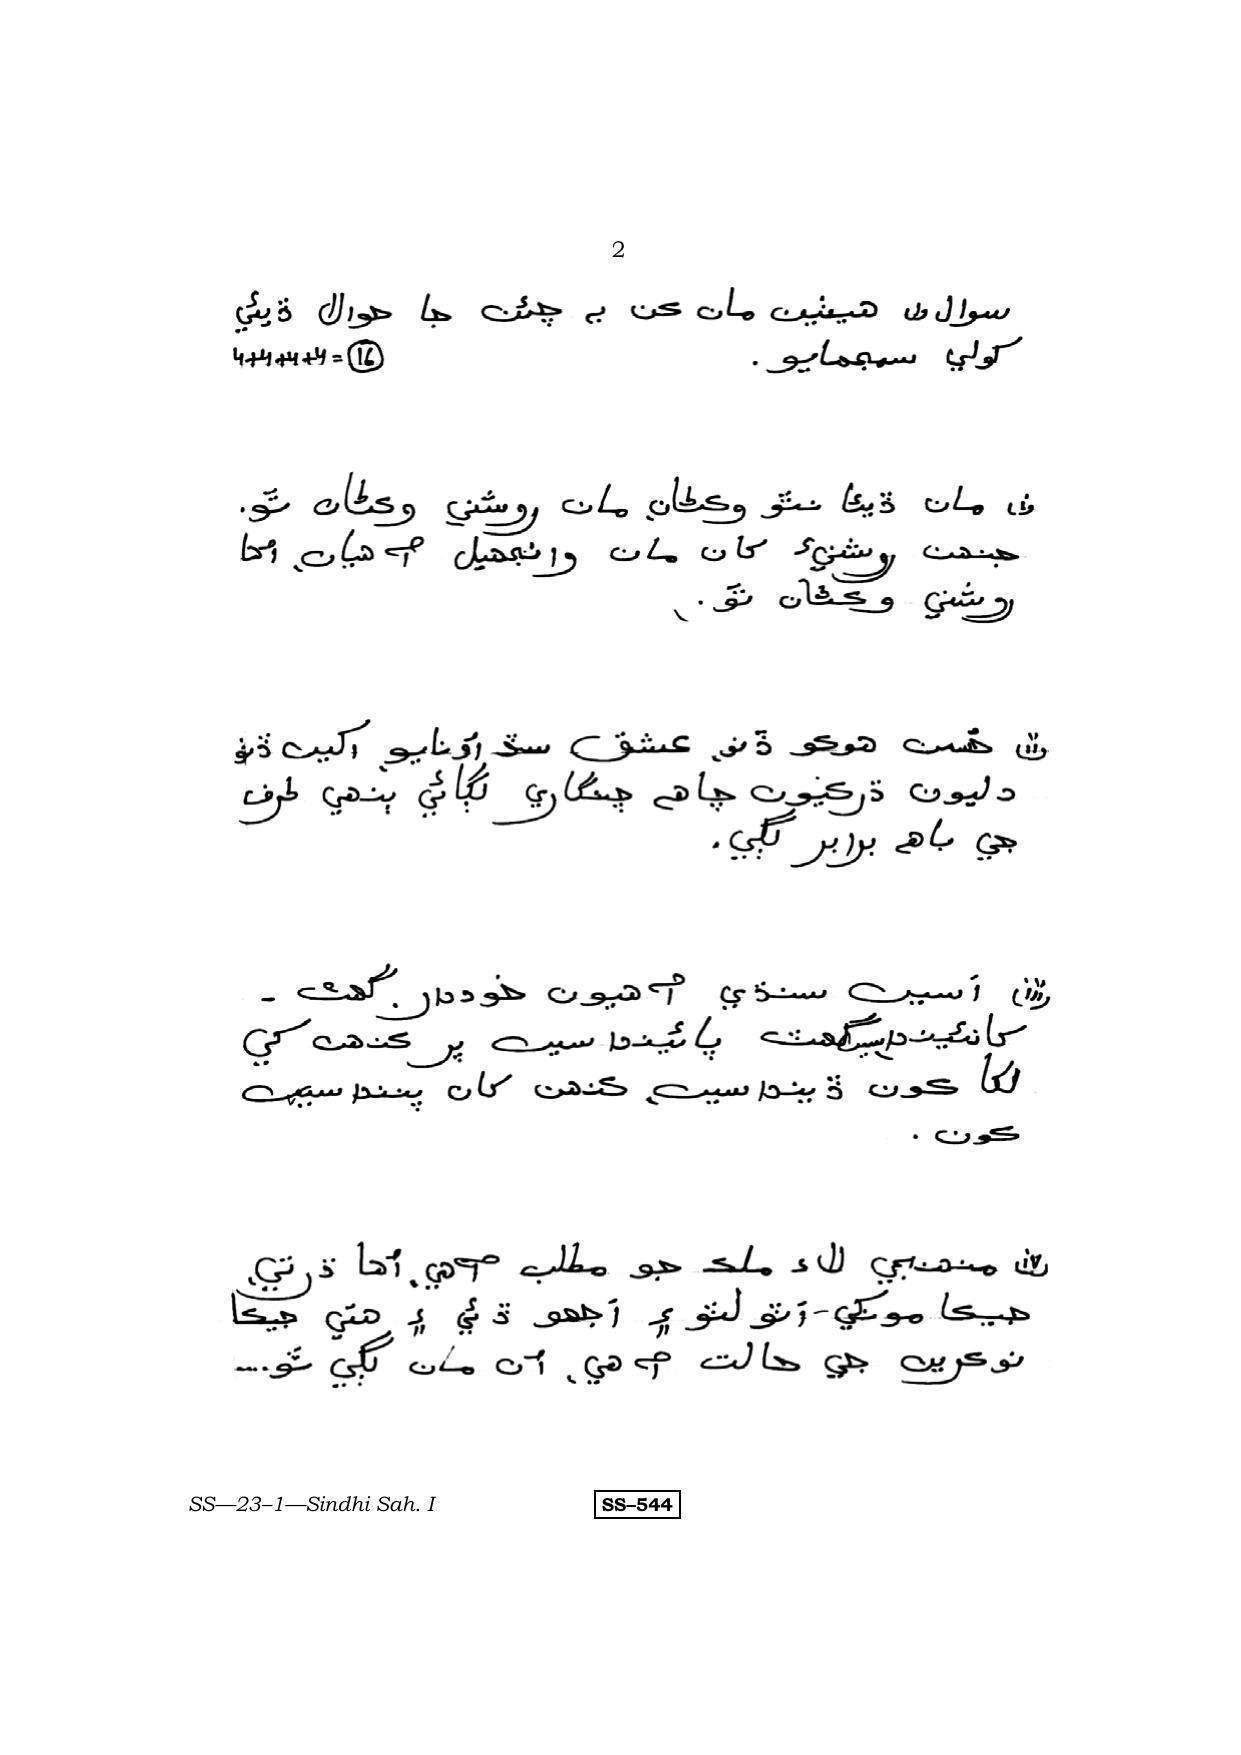 2
سوال (۱) هيٺين مان ڪن بہ چئن جا حوالا ڏيئي
کولي سمجھايو. 4+4+4+4=16
(i) مان ڏيئا نٿو وڪڻان، مان روشني وڪڻان ٿو.
جنھن روشنيءَ کان مان وانجھيل آھيان، اھا
روشني وڪڻان ٿو.
(ii) حسن هوڪو ڏنو، عشق سڏ اونايو، اکين ڏنو
دليون ڌڙڪيون چاھ چنگاري لڳائي ٻنھي طرف
جي باھ برابر لڳي.
(iii) اسين سنڌي آھيون خوددار. گھٽ -
کائينداسين گھٽ پائينداسين پر ڪنھن کي
لکا ڪون ڏينداسين، ڪنھن کان پنندا سين
ڪون.
(iv) منھنجي لاءِ ملڪ جو مطلب آھي، اھا ڌرتي،
جيڪا مونکي - اٽو لٽو ۽ اجھو ڏئي ۽ هتي جيڪا
نوڪرين جي حالت آھي، ان مان لڳي ٿو....
SS—23–1—Sindhi Sah. I
SS–544